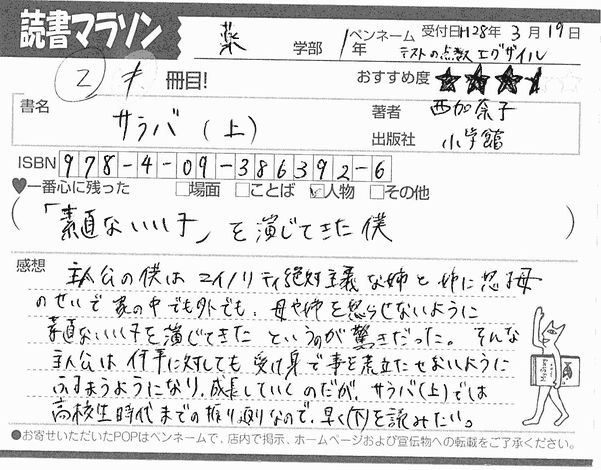 読書マラソン
薬 学部 1年
ペンネーム 受付日 H28年3月19日
テストの点数エグザイル
2 冊目!
おすすめ度 ★★★★
書名
サラバ(上)
著者 西加奈子
出版社 小学館
ISBN 978-4-09-386392-6
♥一番心に残った □場面 □ことば ☑人物 □その他
(「素直ないい子」を演じてきた僕)
感想 主人公の僕はマイノリティ絶対主義な姉と姉に怒る母
のせいで家の中でも外でも、母や姉を怒らせないように
素直ないい子を演じてきたというのが驚きだった。そんな
主人公は何事に対しても受け身で事を荒立たせないように
ふるまうようになり、成長していくのだが、サラバ(上)では
高校生時代までの振り返りなので、早く(下)を読みたい。
Mystery
●お寄せいただいたPOPはペンネームで、店内で掲示、ホームページおよび宣伝物への転載をご了承ください。